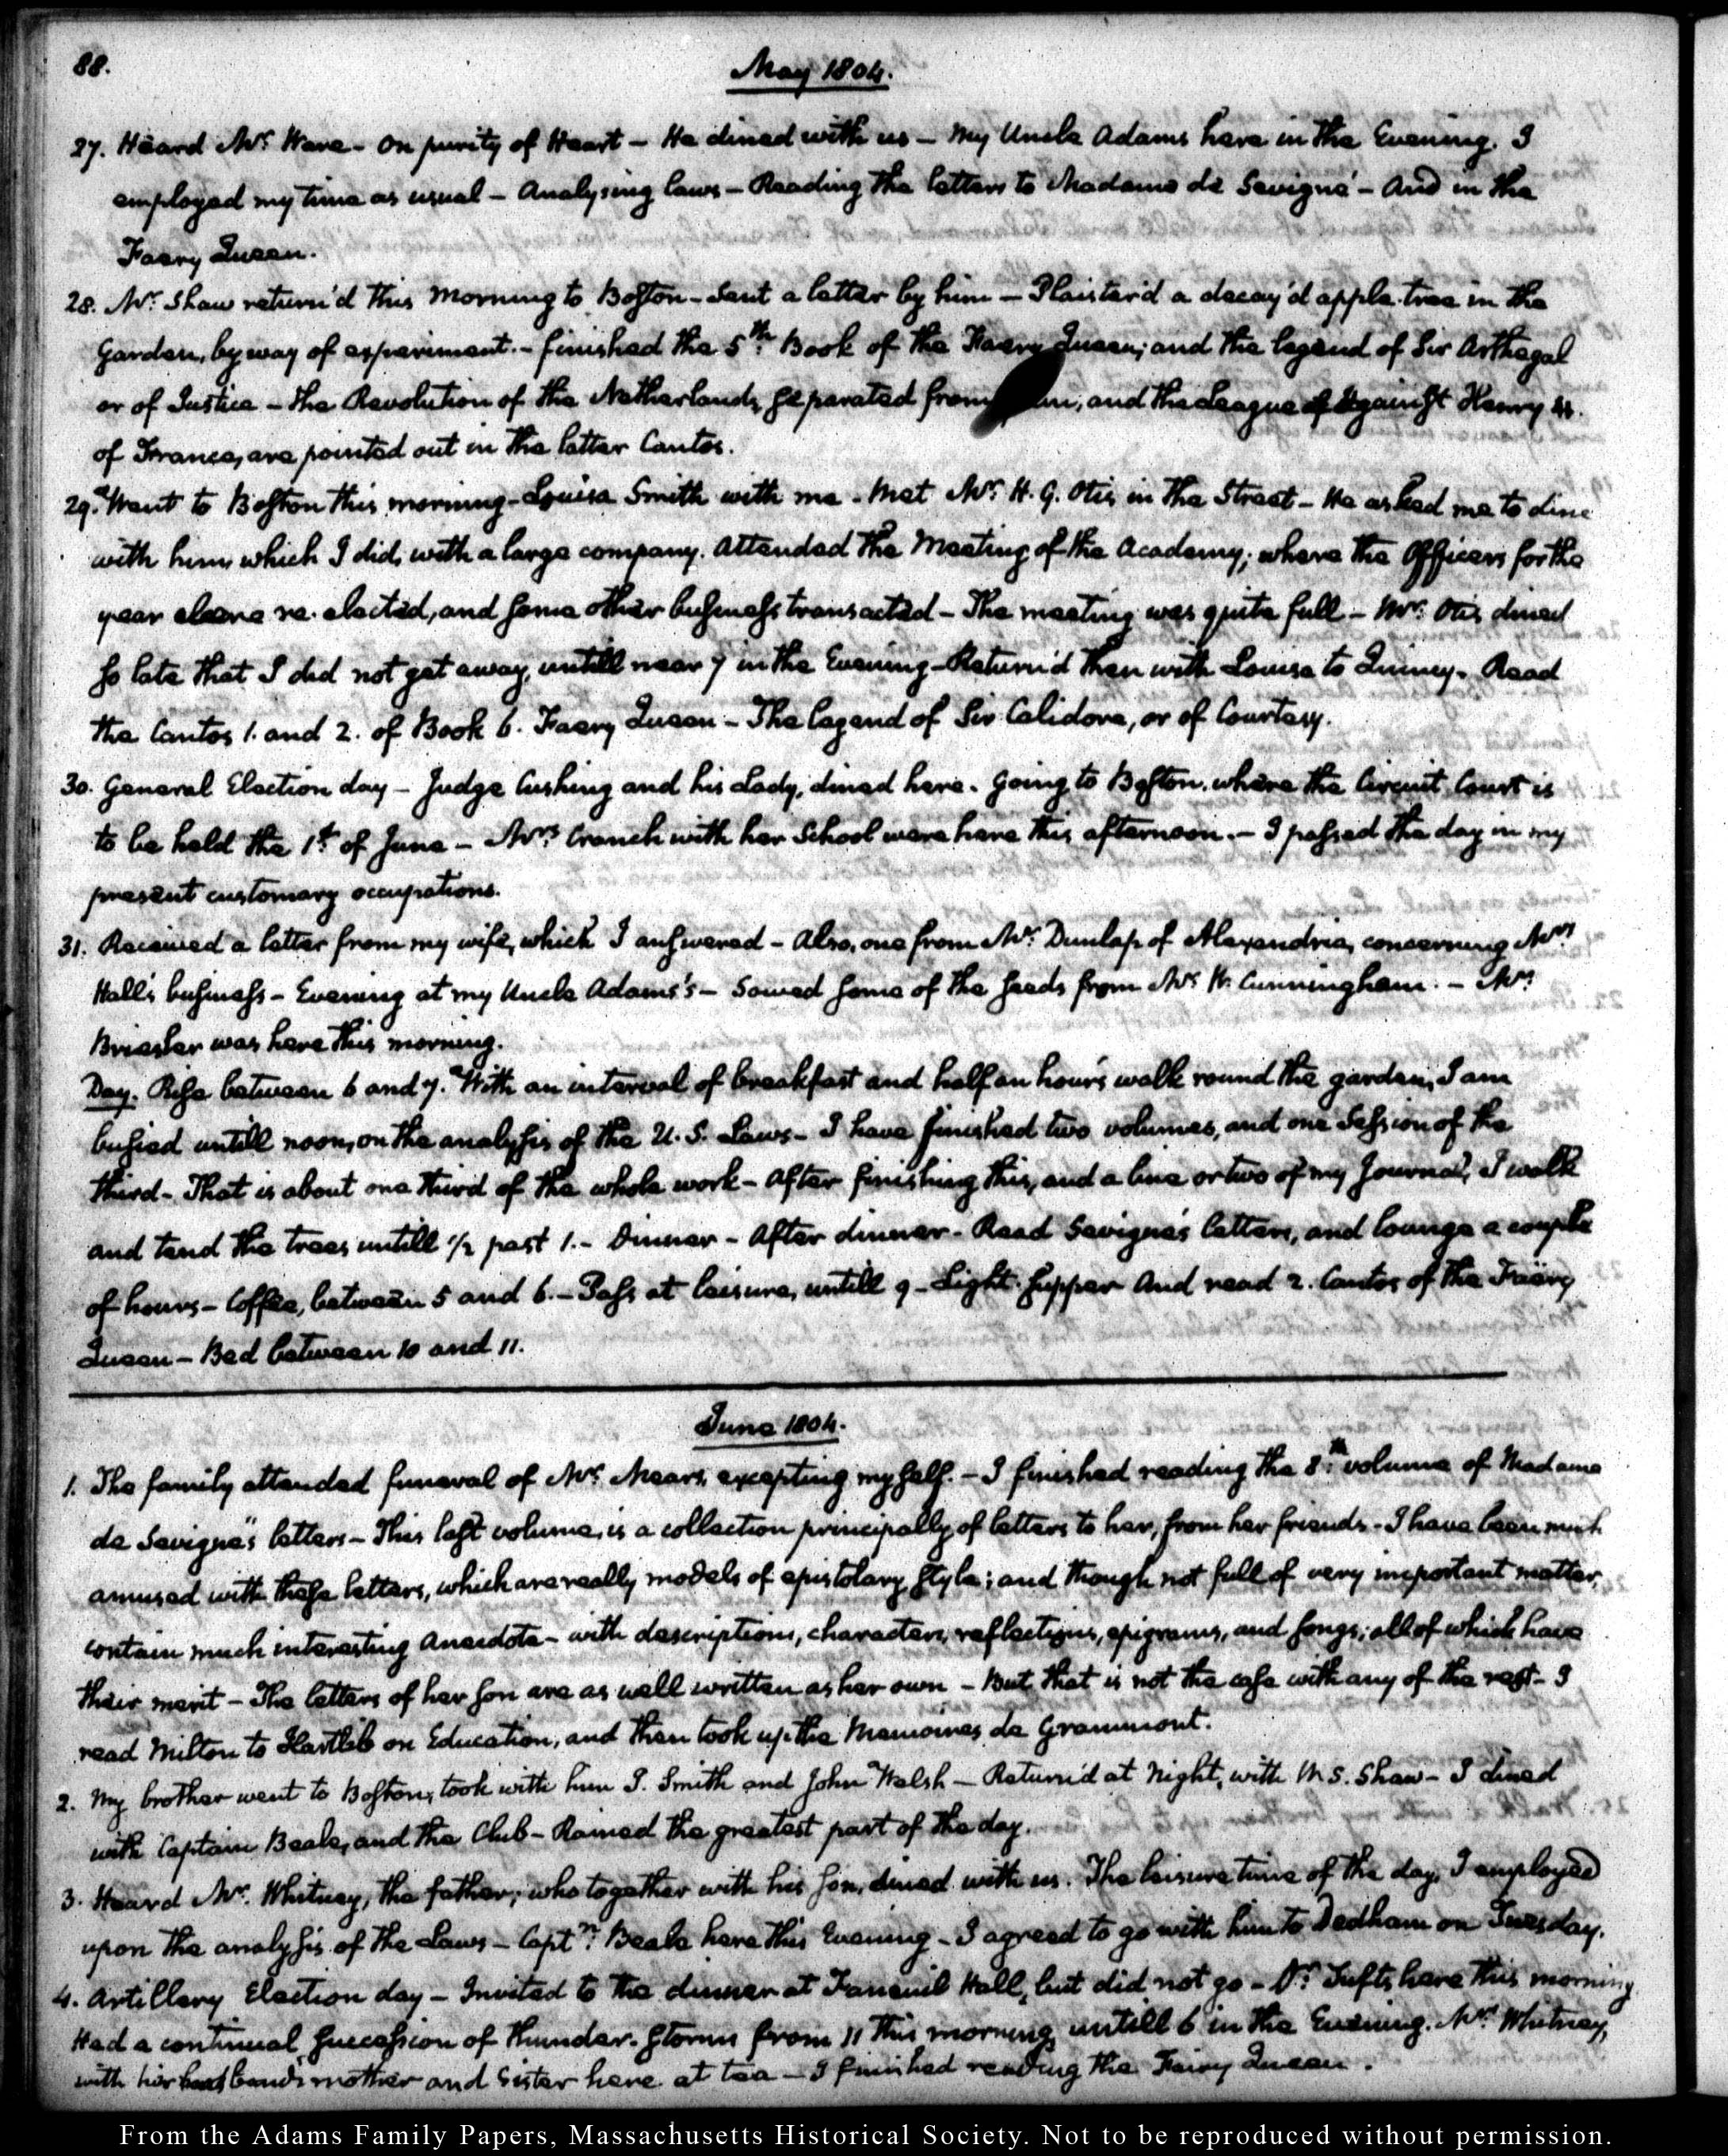 88.
May 1804.
27. Heard Mr. Ware - On purity of Heart - He dined with us - My Uncle Adams here in the Evening. I
employed my time as usual - Analysing laws - Reading the letters to Madame de Sevigné - And in the
Faery Queen.
28. Mr. Shaw return'd this Morning to Boston - Sent a letter by him - Plaister'd a decay'd apple-tree in the
Garden, by way of experiment. - finished the 5th. Book of the Faery Queen; and the legend of Sir Arthegal
or of Justice - The Revolution of the Netherlands, separated from in, and the League of against Henry 4.
of France, are pointed out in the latter Cantos.
29. Went to Boston this morning - Louisa Smith with me - Met Mr. H. G. Otis in the Street - He asked me to dine
with him, which I did, with a large company. Attended the Meeting of the Academy; where the Officers for the
year were re-elected, and some other business transacted - The meeting was quite full - Mr. Otis dined
so late that I did not get away, untill near 7 in the Evening - Return'd then with Louisa to Quincy. Read
the Cantos 1. and 2. of Book 6. Faery Queen - The legend of Sir Calidore, or of Courtesy.
30. General Election day - Judge Cushing and his Lady, dined here. Going to Boston, where the Circuit Court is
to be held the 1st. of June - Mrs. Cranch with her School were here this afternoon. - I passed the day in my
present customary occupations.
31. Received a letter from my wife, which I answered - Also, one from Mr. Dunlap of Alexandria, concerning Mrs.
Hall's business - Evening at my Uncle Adams's - Sowed some of the seeds from Mr. W. Cunningham. - Mrs.
Briesler was here this morning.
Day. Rise between 6 and 7. With an interval of breakfast and half an hour's walk round the garden, I am
busied untill noon, on the analysis of the U. S. Laws - I have finished two volumes, and one Session of the
third - That is about one third of the whole work - After finishing this, and a line or two of my Journal, I walk
and tend the trees untill 1/2 past 1. - Dinner - After dinner - Read Sevigné's letters, and lounge a couple
of hours - Coffee, between 5 and 6. - Pass at leisure, untill 9 - Light supper And read 2. Cantos of the Faery
Queen - Bed between 10 and 11.
June 1804.
1. The family attended funeral of Mr. Mears, excepting myself. - I finished reading the 8th. volume of Madame
de Sevigné's letters - This last volume, is a collection principally of letters to her, from her friends - I have been much
amused with these letters, which are really models of epistolary style; and though not full of very important matter,
contain much interesting Anecdote - with descriptions, characters, reflections, epigrams, and songs; all of which have
their merit - The letters of her son are as well written as her own - But that is not the case with any of the rest - I
read Milton to Hartlib on Education, and then took up the Memoires de Grammont.
2. My brother went to Boston; took with him J. Smith and John Walsh - Return'd at Night, with W. S. Shaw - I dined
with Captain Beale, and the Club - Rained the greatest part of the day.
3. Heard Mr. Whitney, the father; who together with his son, dined with us. The leisure time of the day, I employed
upon the analysis of the Laws - Captn. Beale here this Evening - I agreed to go with him to Dedham on Tuesday.
4. Artillery Election day - Invited to the dinner at Faneuil Hall, but did not go - Dr. Tufts here this morning
Had a continual succession of thunder-storms from 11 this morning untill 6 in the Evening. Mrs. Whitney,
with her husband's mother and Sister here at tea - I finished reading the Fairy Queen.
From the Adams Family Papers, Massachusetts Historical Society. Not to be reproduced without permission.